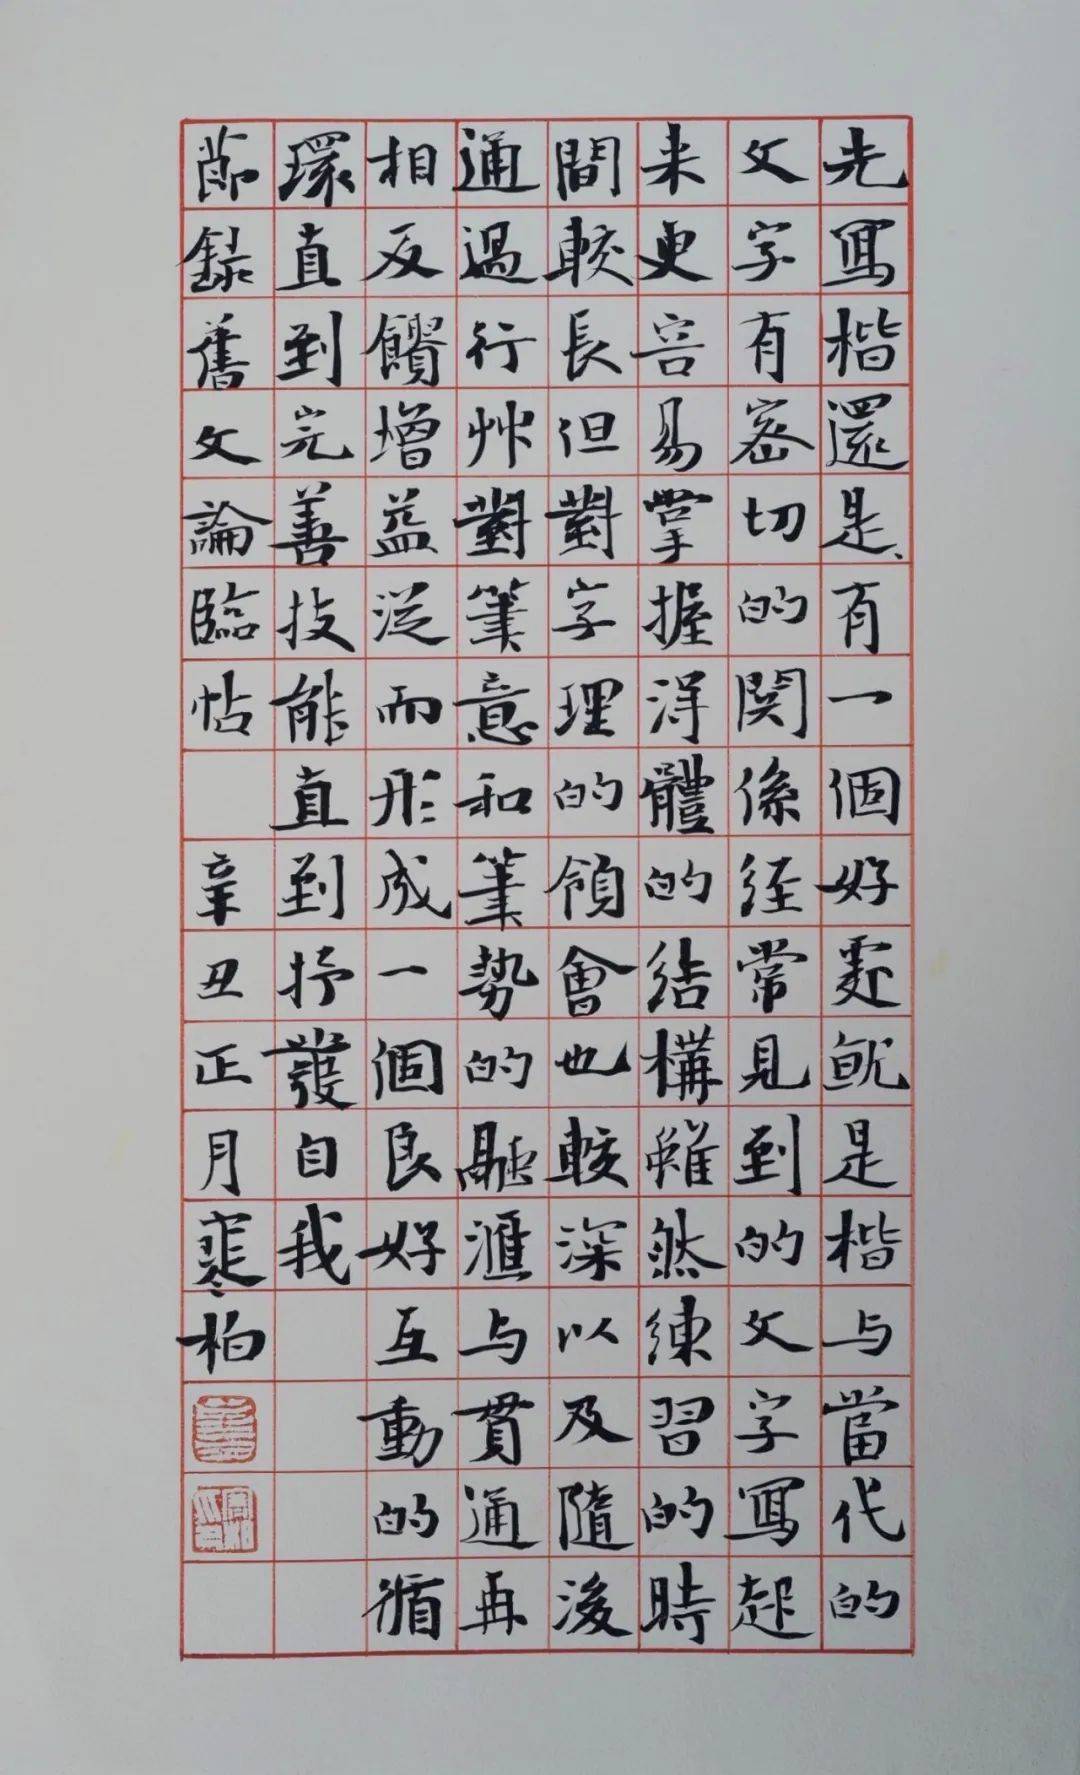 先寫楷還是有一個好處就是楷与當代的
文字有密切的関係経常見到的文字寫起
来更容易掌握淂體的结構雖然練習的時
間較長但對字理的領會也較深以及隨後
通過行艸對筆意和筆勢的融滙与貫通再
相反饋增益從而形成一個良好互動的循
環直到完善技能直到抒發自我
節録舊文論臨帖 辛丑正月寒柏